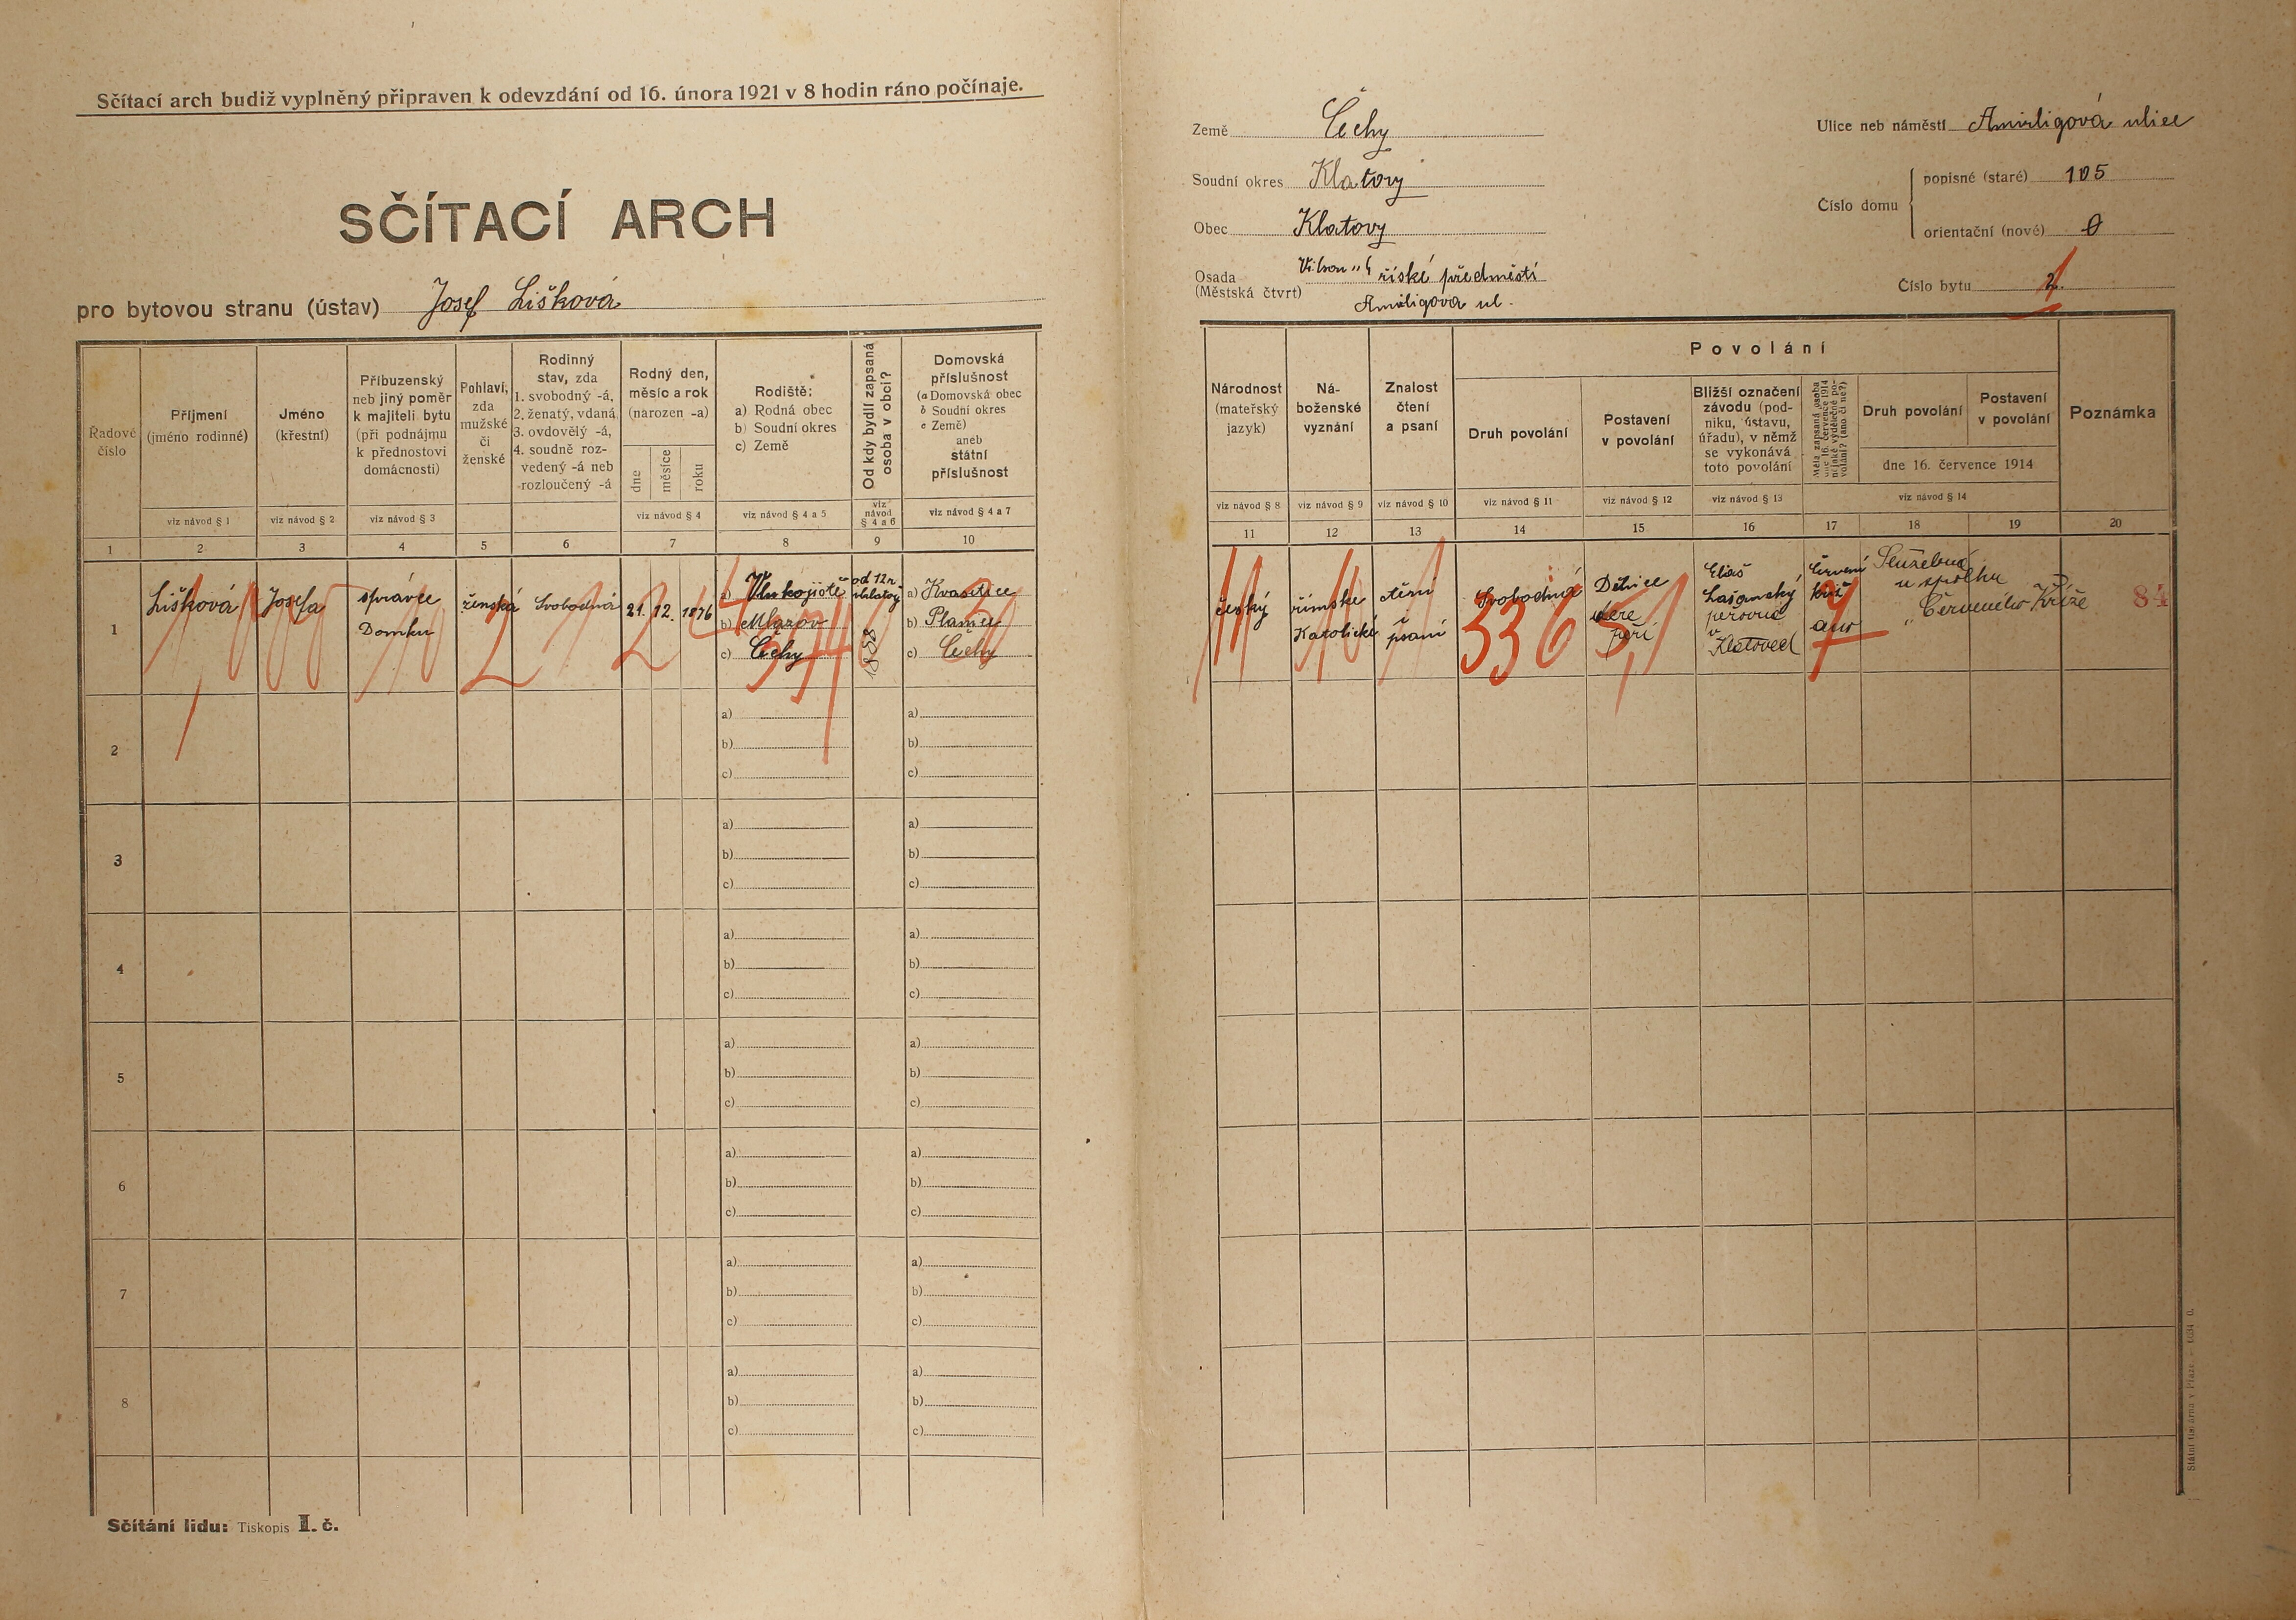 Sčítací arch budiž vyplněný připraven k odevzdání od 16. února 1921 v 8 hodin ráno počínaje.
SČÍTACÍ ARCH
pro bytovou stranu (ústav) Josef Lišková
Řadové číslo
Příjmení
(jméno rodinné)
Jméno
(křestní)
Příbuzenský
neb jiný poměr
k majiteli bytu
(při podnájmu
k přednostovi
domácnosti)
Pohlaví,
zda
mužské
či
ženské
Rodinný
stav, zda
1. svobodný -á,
2. ženatý, vdaná
3. ovdovělý -á,
4. soudně roz-
vedený -á neb
rozloučený -á
Rodný den,
měsíc a rok
(narozen -a)
dne
měsíce
roku
Rodiště:
a) Rodná obec
b) Soudní okres
c) Země
Od kdy bydlí zapsaná
osoba v obci?
Domovská
příslušnost
(a Domovská obec
b Soudní okres
c Země)
aneb
státní
příslušnost
viz návod § 1
viz návod § 2
viz návod § 3
viz návod § 4
viz návod § 4 a 5
viz
návod
§ 4 a 6
viz návod § 4 a 7
1 2 3 4 5 6 7 8 9 10
1
Lišková
Josefa
správce
Domku
ženská
Svobodná
21. 12. 1876
a)
b) Mlázov
c) Čechy
od 12 r.
a) Kvasetice
b)
c) Čechy
2
a) a)
b) b)
c) c)
3
a) a)
b) b)
c) c)
4
a) a)
b) b)
c) c)
5
a) a)
b) b)
c) c)
6
a) a)
b) b)
c) c)
7
a) a)
b) b)
c) c)
8
a) a)
b) b)
c) c)
Sčítání lidu: Tiskopis I. č.
Země Čechy
Soudní okres Klatovy
Obec Klatovy
Osada
(Městská čtvrt)
říské předměstí
Ulice neb náměstí ulice
Číslo domu
popisné (staré) 105
orientační (nové) 0
Číslo bytu
Národnost
(mateřský
jazyk)
Ná-
boženské
vyznání
Znalost
čtení
a psaní
Povolání
Druh povolání
Postavení
v povolání
Bližší označení
závodu (pod-
niku, ústavu,
úřadu), v němž
se vykonává
toto povolání
Měla zapsaná osoba
dne 16. července 1914
nějaké výdělečné po-
volání? (ano či ne?)
Druh povolání
Postavení
v povolání
dne 16. července 1914
Poznámka
viz návod § 8
viz návod § 9
viz návod § 10
viz návod § 11
viz návod § 12
viz návod § 13
viz návod § 14
11 12 13 14 15 16 17 18 19 20
český
římske
Katolické
čtení
i
psaní
Svobodná
336
Dělnice
dere
peří
5,1
Eliáš
Lažanský
peřovna
v
Klatovech
Červení
Kříž
ano
Služebná
u spolku
Červeného Kříže
84